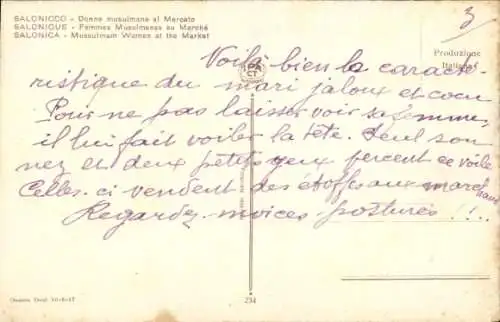 SALONICCO - Donne musulmane al Mercato
SALONIQUE - Femmes Musulmanes au Marché
SALONICA - Mussulmam Women at the Market
3
Produzione
Italiana
Voilà bien la caracté-
ristique du mari jaloux et cocu
Pour ne pas laisser voir sa femme,
il lui fait voiler la tête. Seul son
nez et deux petits yeux percent ce voile
Celles-ci vendent des étoffes aux marchands
Regardez-moi ces postures !!!
234